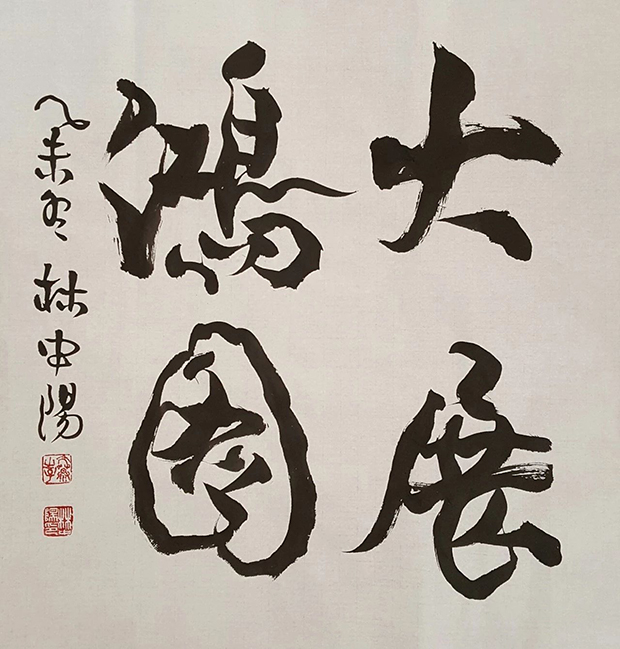 大展
鴻圖
癸未冬 林中陽